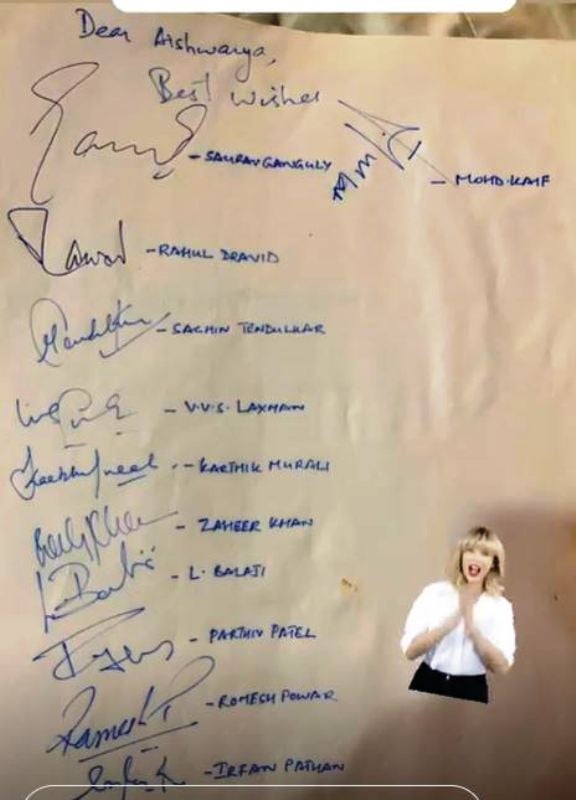 Dear Aishwarya,
Best wishes
- SAURAV GANGULY
- MOHD. KAIF
- RAHUL DRAVID
- SACHIN TENDULKAR
- V.V.S. LAXMAN
- KARTHIK MURALI
- ZAHEER KHAN
- L. BALAJI
- PARTHIV PATEL
- ROMESH POWAR
- IRFAN PATHAN